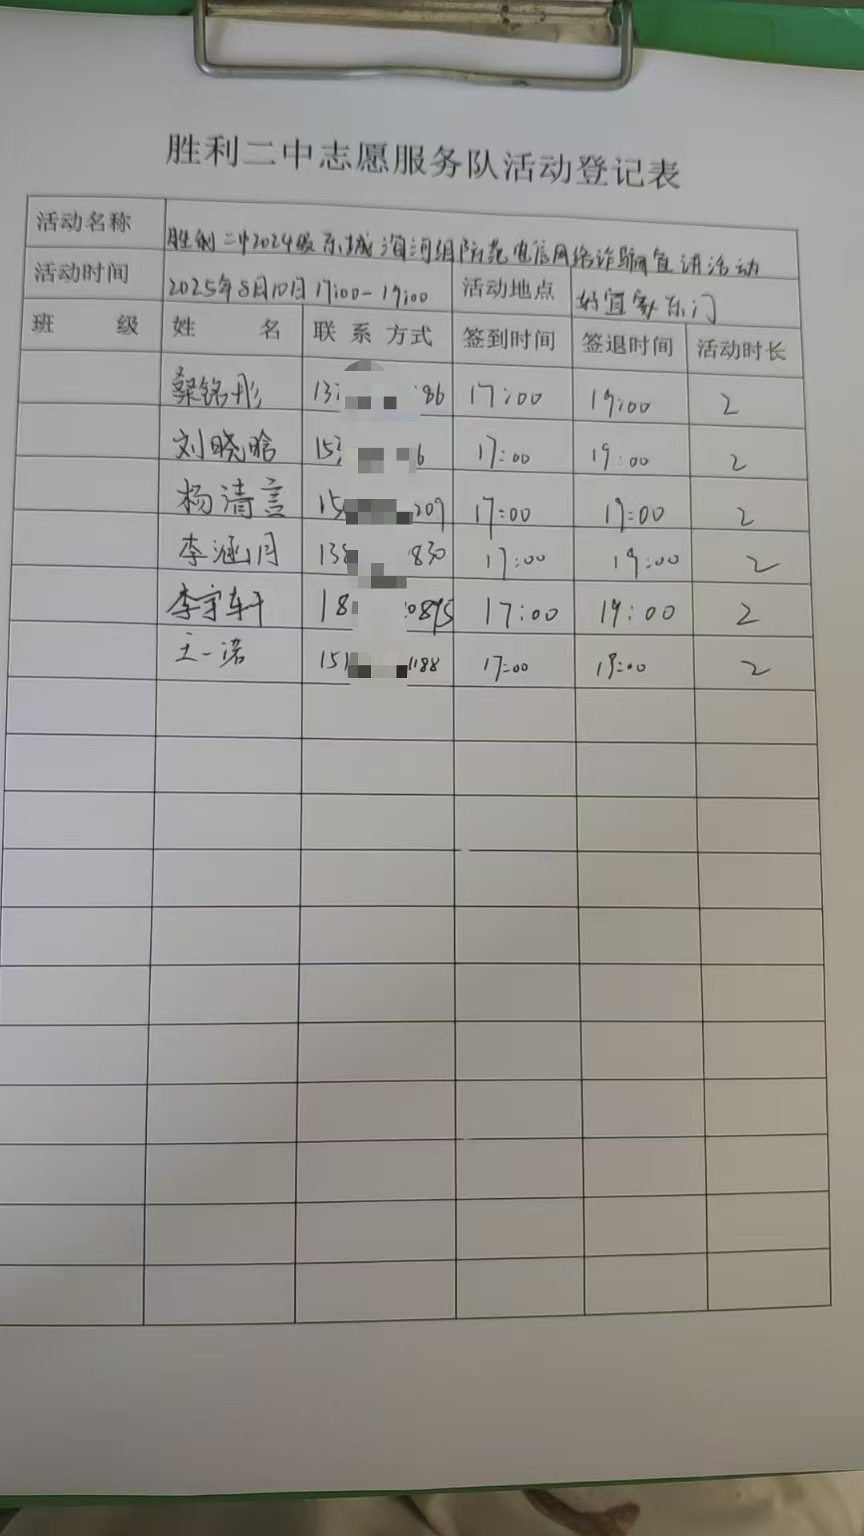 胜利二中志愿服务队活动登记表
活动名称 胜利二中2024级东城淄河组防范电信网络诈骗宣讲活动
活动时间 2025年8月10日 17:00-19:00 活动地点 好宜家东门
班 级 姓 名 联 系 方式 签到时间 签退时间 活动时长
桑铭彤 13 86 17:00 19:00 2
刘晓晗 15 6 17:00 19:00 2
杨清言 15 209 17:00 19:00 2
李涵月 138 830 17:00 19:00 2
李宇轩 18 0895 17:00 19:00 2
王一诺 151 1188 17:00 19:00 2